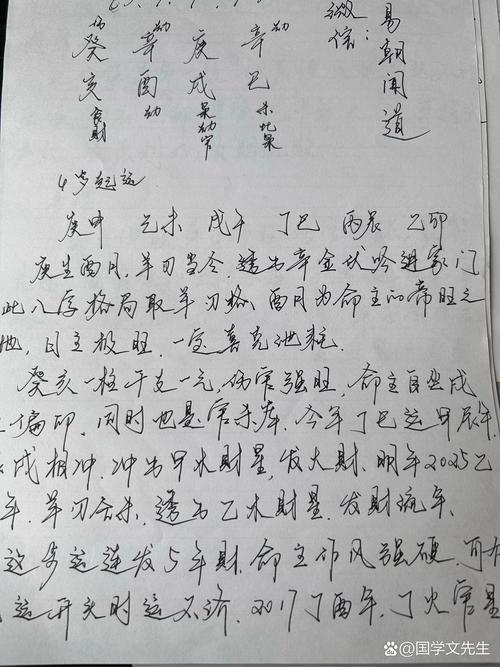 伤 劫 劫
癸 辛 庚 辛
亥 酉 戌 巳
食财 劫 枭劫官 杀比枭
微信：易朝闻道
4岁起运
庚申 己未 戊午 丁巳 丙辰 乙卯
庚生酉月，羊刃当令，透出辛金伏吟进家门
此八字格局取羊刃格、酉月为命主的帝旺之
地，日主极旺，一定喜克泄耗.
癸亥一柱干支一气，伤官强旺，命主自坐戌
偏印，同时也是官杀库，今年丁巳运甲辰年，
戌相冲，冲出甲木财星，发大财，明年2025乙
年，羊刃合杀，透出乙木财星，发财流年、
这步运连发5年财，命主作风强硬，可
运开头时运不济，2017丁酉年，丁火官星
国学文先生